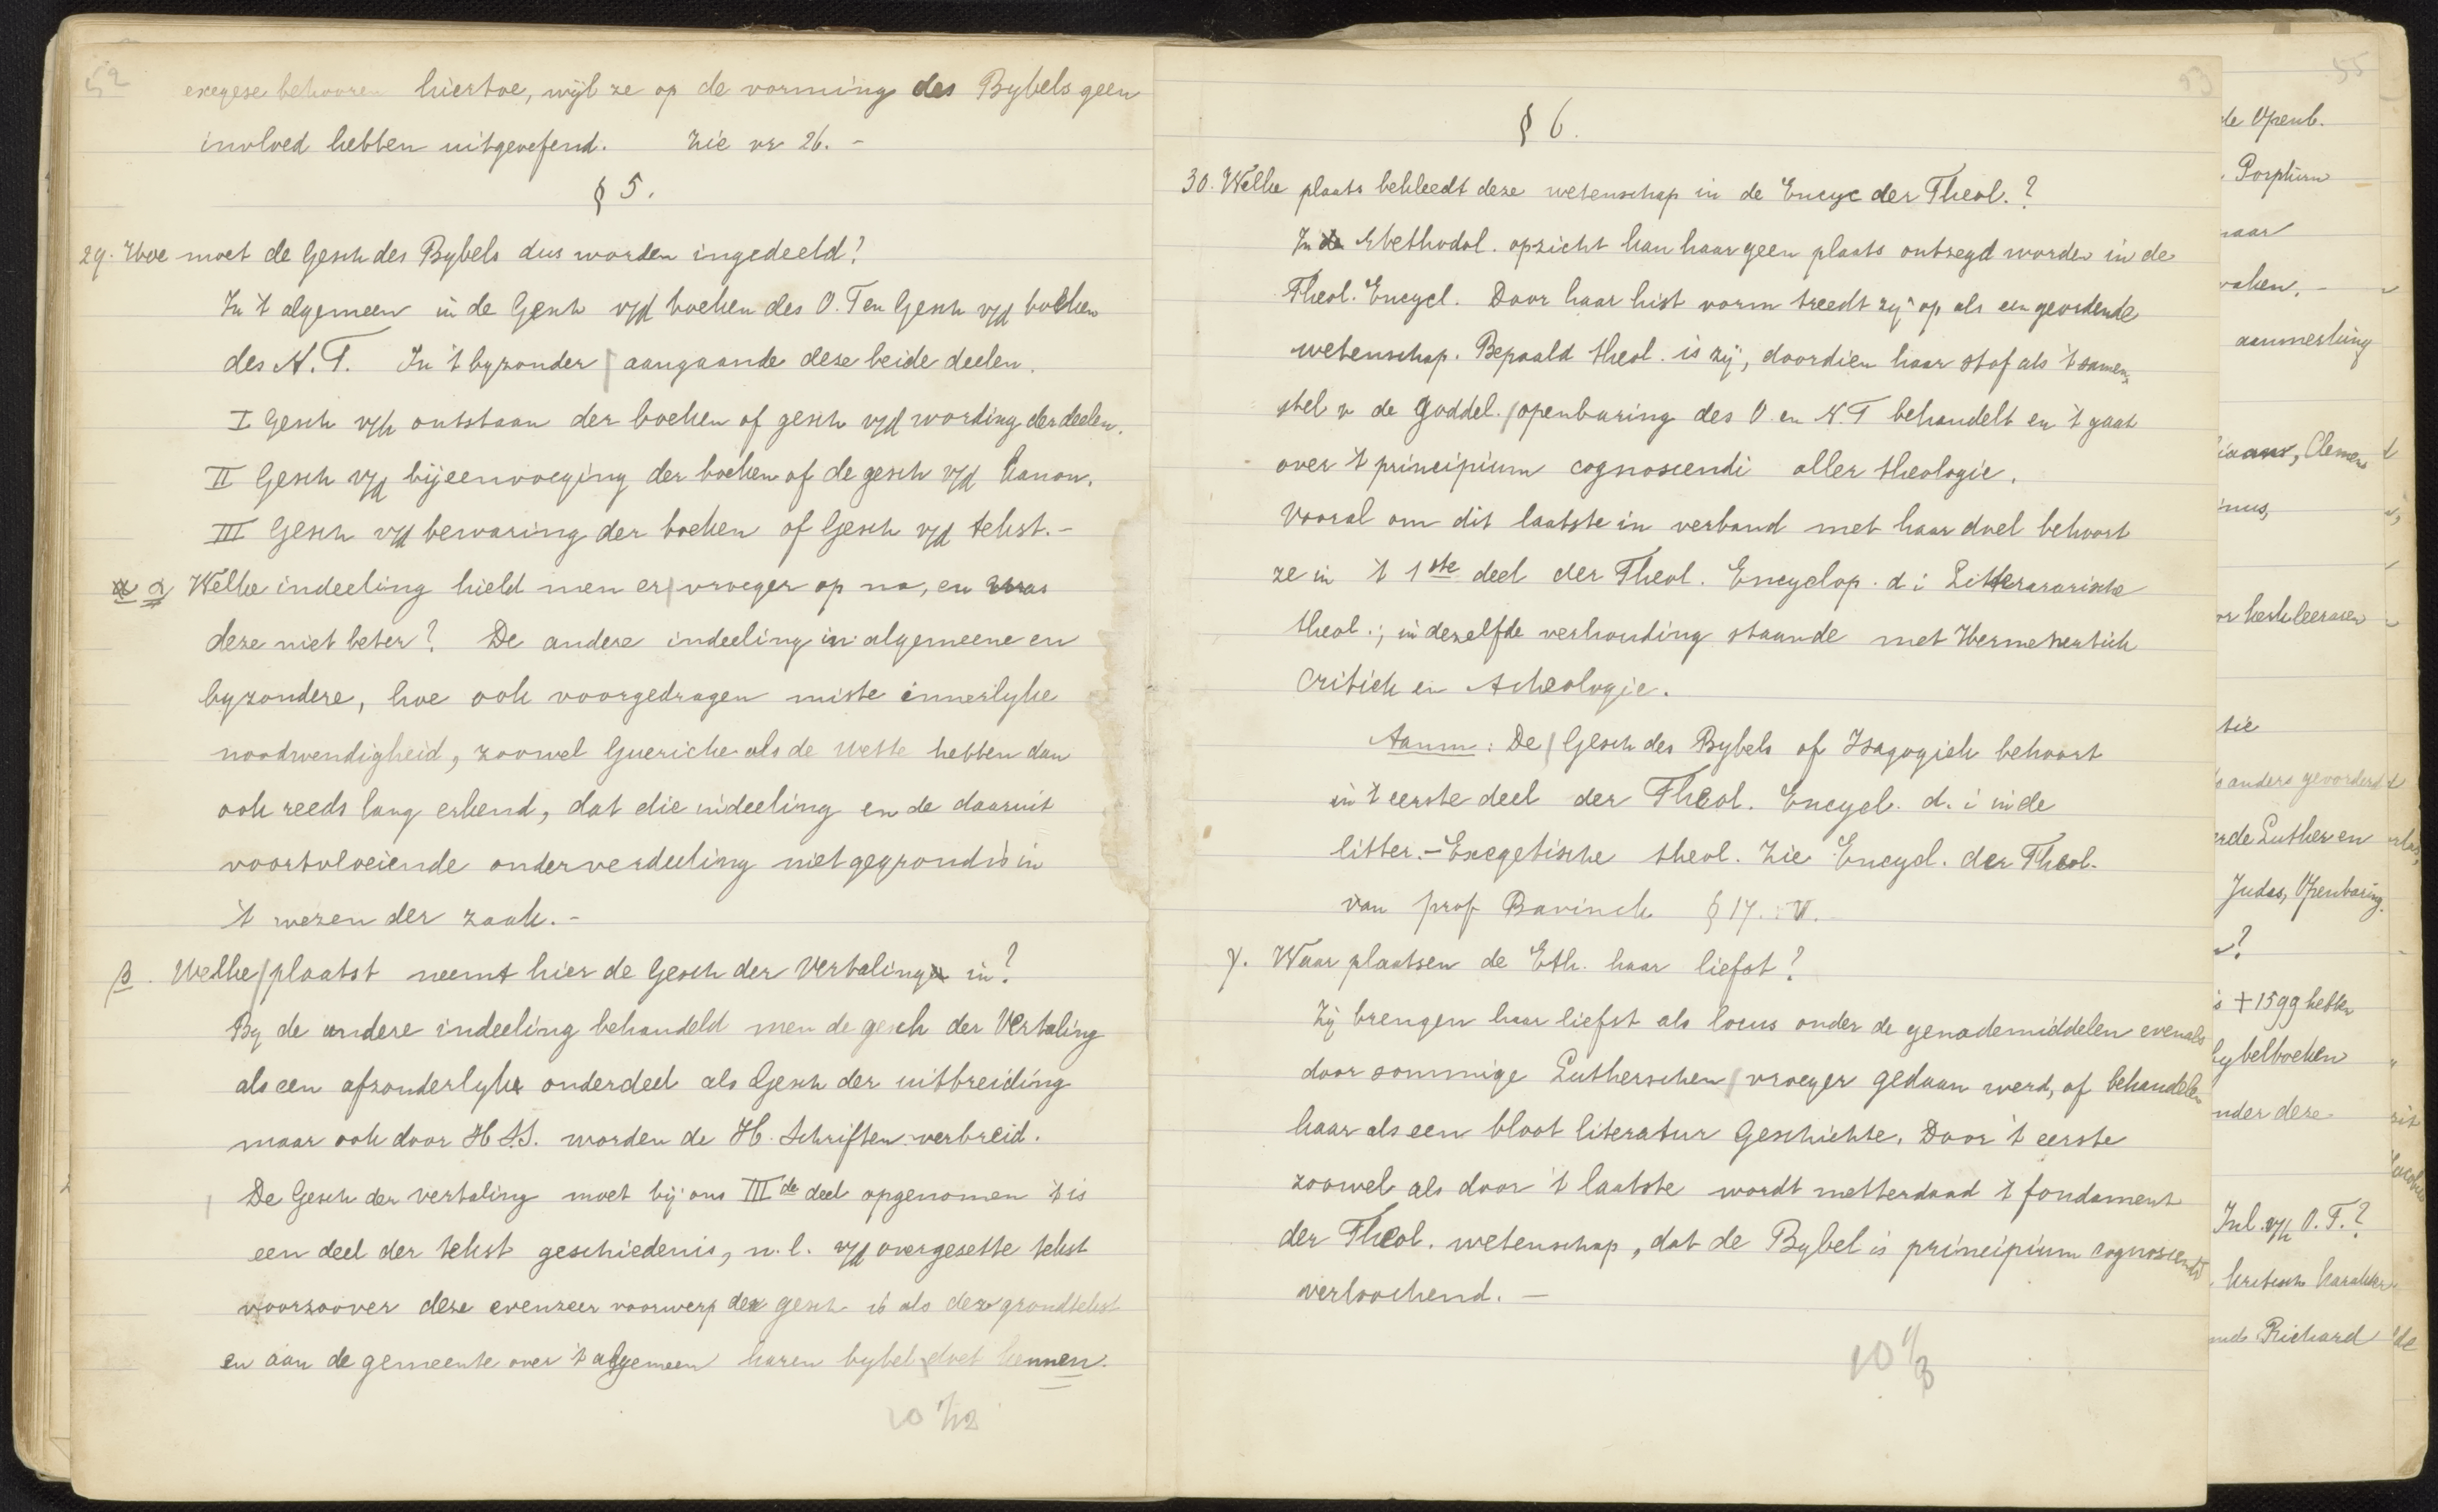 52
exegese behooren hiertoe, wijl ze op de vorming des Bybels geen
invloed hebben uitgeoefend. Zie vr 26. -
§ 5.
29. Hoe moet de Gesch des Bybels dus worden ingedeeld?
In 't algemeen in de Gesch v/d boeken des O. T en Gesch v/d boeken
des N. T. In 't byzonder aangaande deze beide deelen.
I Gesch v/h ontstaan der boeken of gesch v/d wording der deelen.
II Gesch v/d bijeenvoeging der boeken of de gesch v/d kanon.
III Gesch v/d bewaring der boeken of Gesch v/d tekst. -
α Welke indeeling hield men er vroeger op na, en was
deze niet beter? De andere indeeling in algemeene en
byzondere, hoe ook voorgedragen miste innerlyke
noodwendigheid, zoowel Guericke als de Wette hebben dan
ook reeds lang erkend, dat die indeeling en de daaruit
voortvloeiende onderverdeeling niet gegrond is in
't wezen der zaak. -
β. Welke plaatst neemt hier de Gesch der Vertaling in?
By de andere indeeling behandeld men de gesch der Vertaling
als een afzonderlyke onderdeel als Gesch der uitbreiding
maar ook door H.S.S. worden de H. Schriften verbreid.
De Gesch der vertaling moet bij ons III de deel opgenomen 't is
een deel der tekst geschiedenis, n. l. v/d overgezette tekst
voorzoover deze evenzeer voorwerp der gesch is als der grondtekst
en aan de gemeente over 't algemeen haren bybel doet kennen.
53
§ 6.
30. Welke plaats bekleedt deze wetenschap in de Encyc der Theol.?
In Methodol. opzicht kan haar geen plaats ontzegd worden in de
Theol. Encycl. Door haar hist vorm treedt zij op als een geordende
wetenschap. Bepaald theol. is zij, doordien haar stof als 't samen-
stel v de goddel. openbaring des O en N. T behandelt en 't gaat
over 't principium cognoscendi aller theologie.
Vooral om dit laatste in verband met haar doel behoort
ze in 't 1ste deel der Theol. Encyclop. d i Litterararische
theol.; in dezelfde verhouding staande met Hermeneutiek
Critiek en Acheologie.
Aanm: De Gesch des Bybels of Isagogiek behoort
in 't eerste deel der Theol. Encycl. d. i in de
litter. - Exegetische theol. Zie Encycl. der Theol.
van prof Bavinck § 17. VI.
γ. Waar plaatsen de Eth. haar liefst?
Zij brengen haar liefst als locus onder de genademiddelen evenals
door sommige Lutherschen vroeger gedaan werd, of behandelen
haar als een bloot literatur Geschichte. Door 't eerste
zoowel als door 't laatste wordt metterdaad 't fondament
der Theol. wetenschap, dat de Bybel is principium cognoscendi
verloochend. -
55
de Openb.
aanmerking
Clemens
kerkleeraren
anders gevorderd
Luther en
Judas, Openbaring.
+ 1599 hebben
bybelboeken
onder deze
Inl. v/h O. T.?
kritisch karakter
Richard